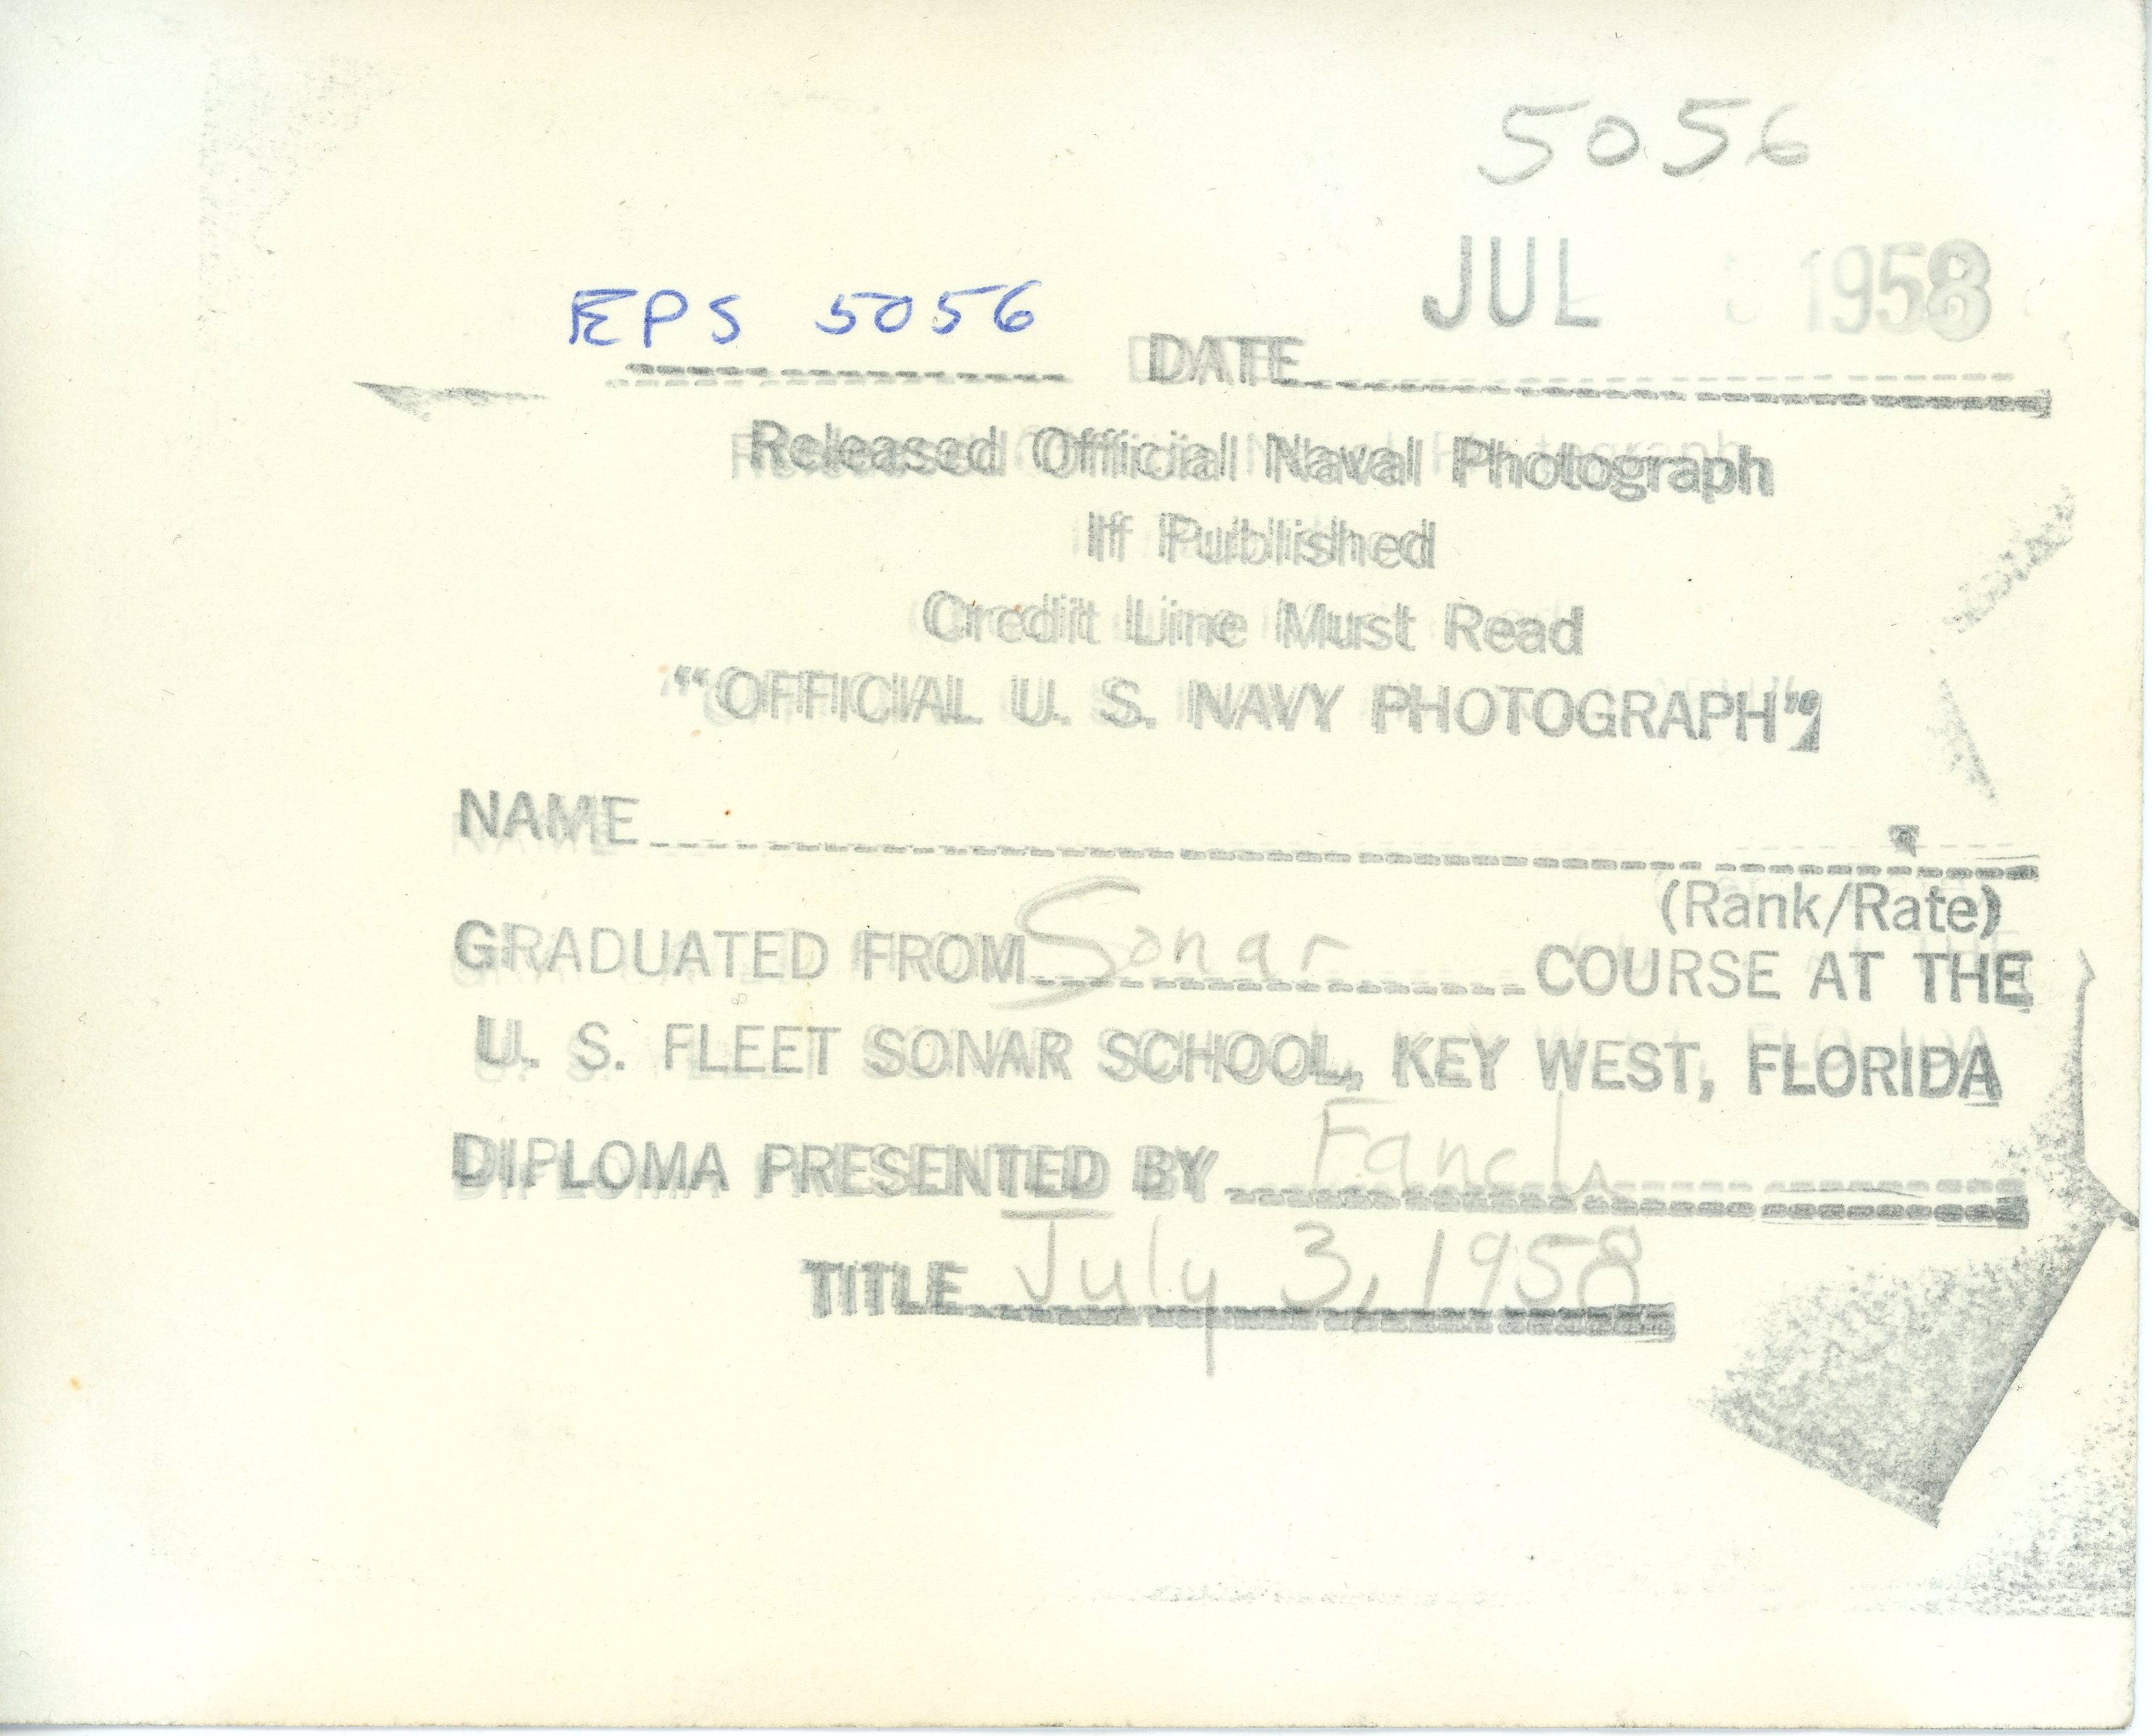 5056
JUL 1958
EPS 5056 DATE
Released Official Naval Photograph
If Published
Credit Line Must Read
"OFFICIAL U. S. NAVY PHOTOGRAPH"
NAME
(Rank/Rate)
GRADUATED FROM Sonar COURSE AT THE
U. S. FLEET SONAR SCHOOL, KEY WEST, FLORIDA
DIPLOMA PRESENTED BY Fanch
TITLE July 3, 1958